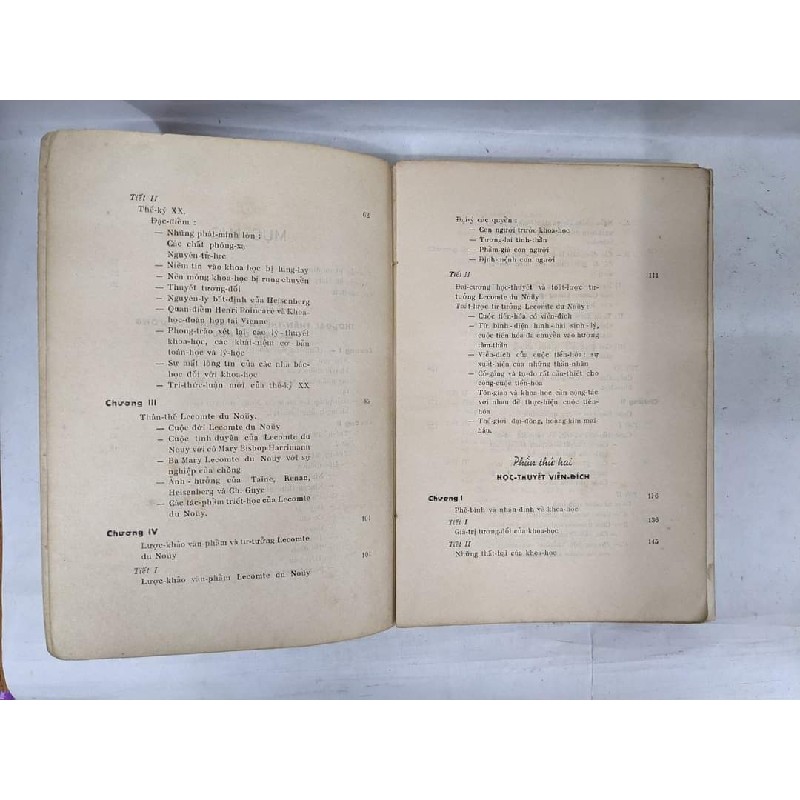 Tiết II
Thế-kỷ XX. 62
Đặc-điểm :
— Những phát-minh lớn :
Các chất phóng-xạ
Nguyên-tử-học
— Niềm tin vào khoa học bị lung-lay
— Nền móng khoa-học bị rung-chuyển
— Thuyết tương-đối
— Nguyên-lý bất-định của Heisenberg
— Quan-điểm Henri Poincaré về Khoa-
học-đoàn họp tại Vienne
— Phong-trào xét lại các lý-thuyết
khoa-học, các khái-niệm cơ bản
toán-học và lý-học
— Sự mất lòng tin của các nhà bác-
học đối với khoa-học
— Tri-thức-luận mới của thế-kỷ XX
Chương III
Thân-thế Lecomte du Noüy.
— Cuộc đời Lecomte du Noüy
— Cuộc tình duyên của Lecomte du
du Noüy với cô Mary Bishop Harrimann
— Bà Mary Lecomte du Noüy với sự
nghiệp của chồng
— Ảnh-hưởng của Taine, Renan,
Heisenberg và Ch. Guye
— Các tác-phẩm triết-học của Lecomte
du Noüy.
Chương IV
Lược-khảo văn phẩm và tư-tưởng Lecomte
du Noüy
Tiết I
Lược-khảo văn-phẩm Lecomte du Noüy
Đại-ý các quyển :
— Con người trước khoa-học
— Tương-lai tinh-thần
— Phẩm-giá con người
— Định-mệnh con người
Tiết II 111
Đại-cương học-thuyết và triết-học tư-
tưởng Lecomte du Noüy
lược tư tưởng Lecomte du Noüy :
— Cuộc tiến-hóa có viễn-đích
— Từ bình-diện hình-hài sinh-lý,
cuộc tiến-hóa đã chuyển vào tương
tinh-thần
— Viễn-đích của cuộc tiến-hóa : sự
xuất-hiện của những thần-nhân
— Cố-gắng và tự-do rất cần-thiết cho
công-cuộc tiến-hóa
Tôn-giáo và khoa học cần cộng-tác
với nhau để thực-hiện cuộc tiến-
hóa
Thế-giới đại-đồng, hoàng kim mai
hậu.
Phần thứ hai
HỌC-THUYẾT VIỄN-ĐÍCH
Chương I 136
Phê-bình và nhận-định về khoa-học
Tiết I 136
Giá-trị tương-đối của khoa-học
Tiết II 145
Những thất-bại của khoa-học